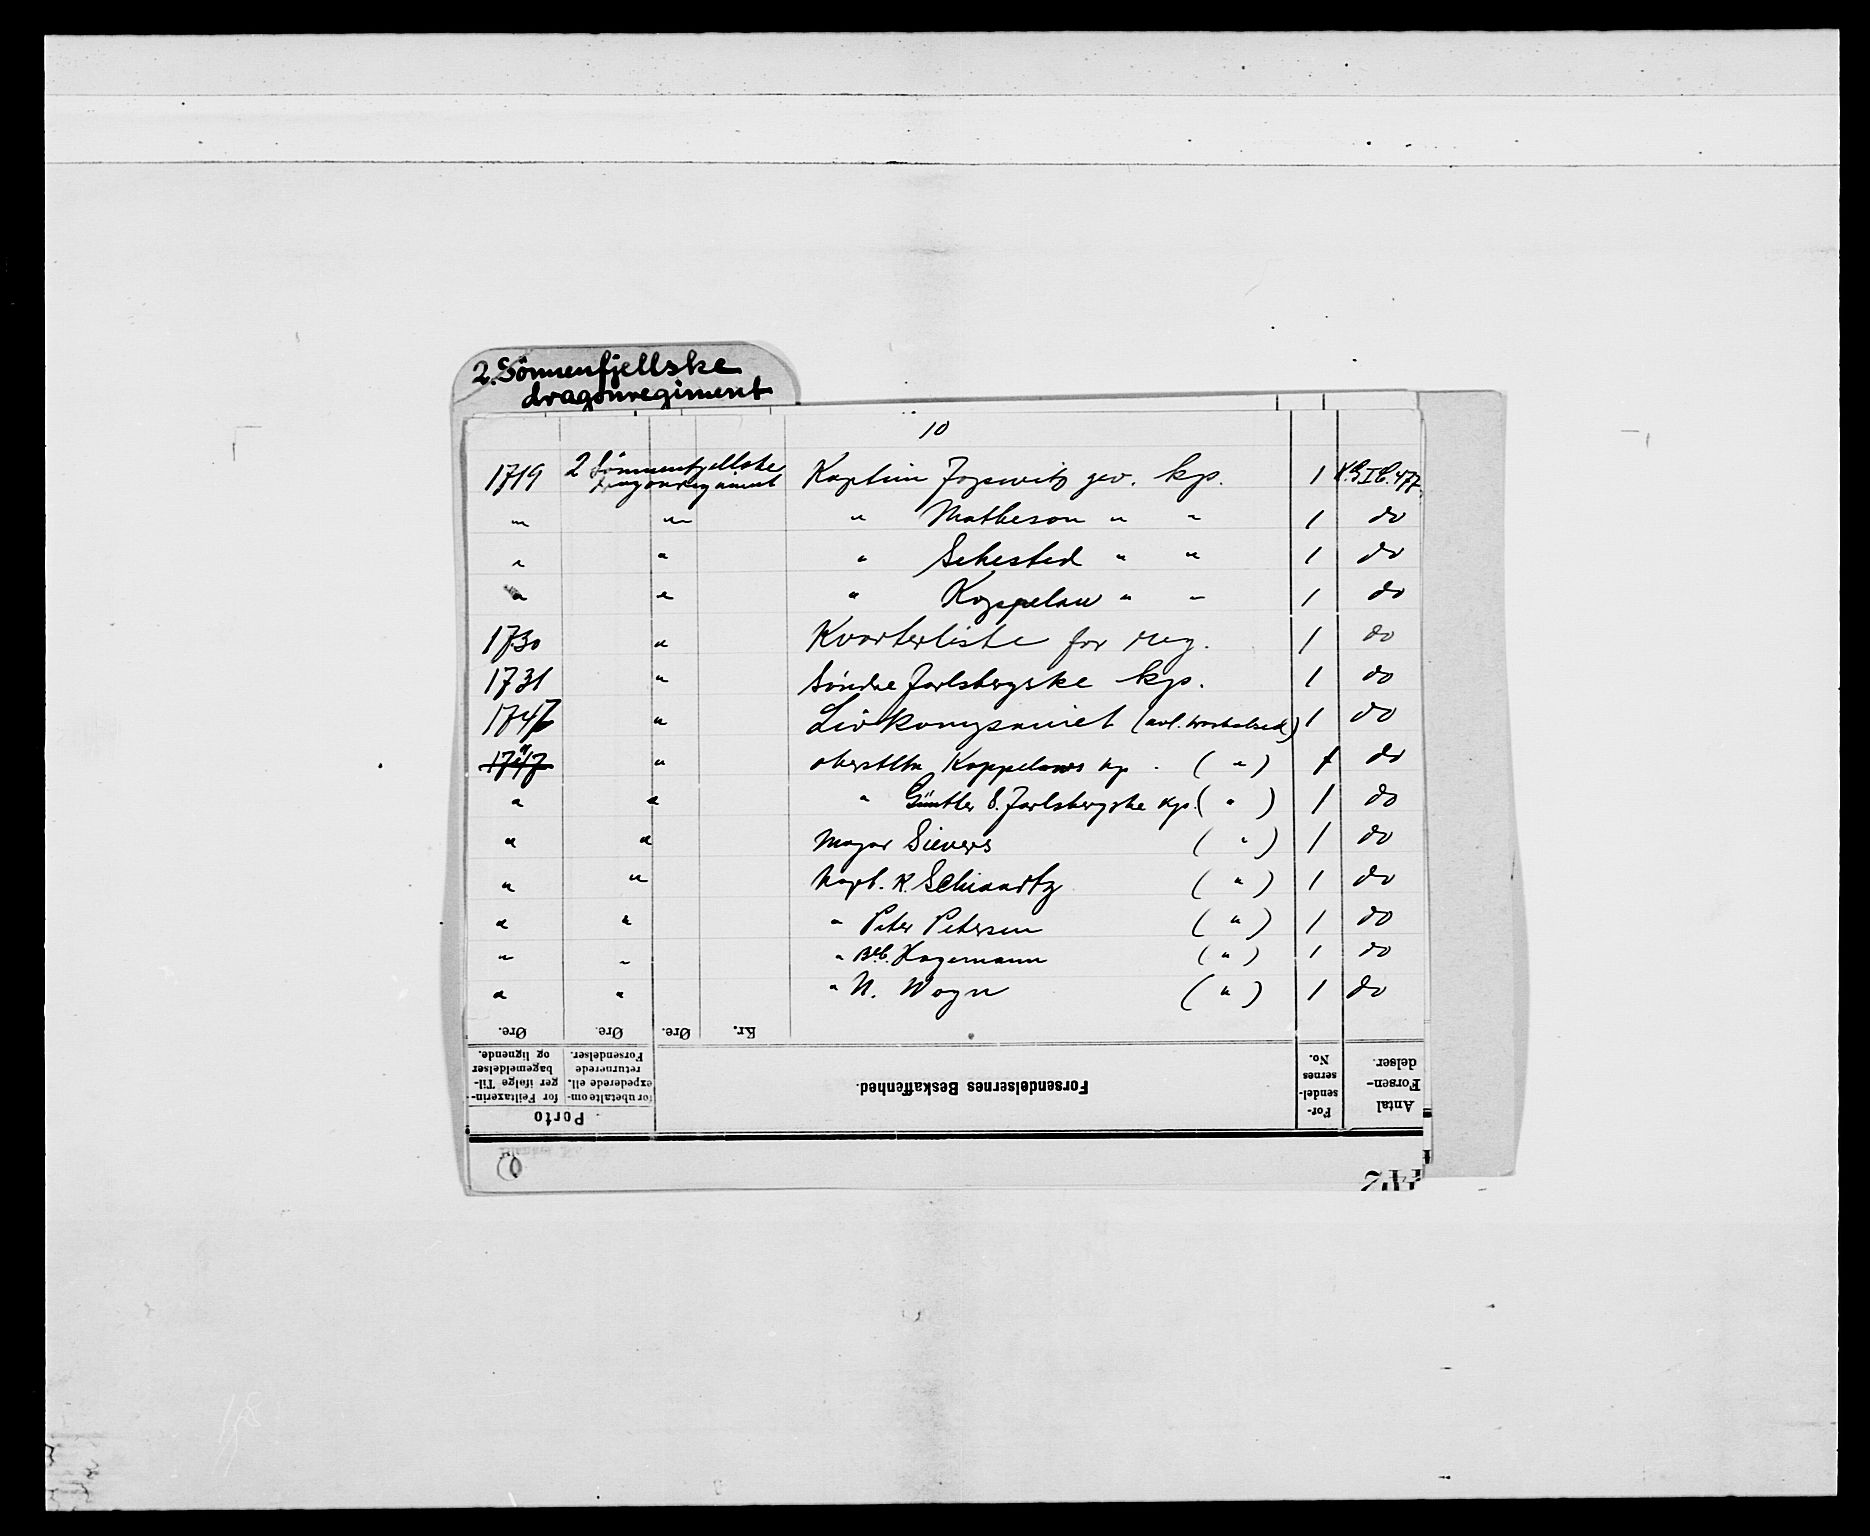 2. Sönnenfjellske
dragonregiment
10
1719 2 Sönnenfjellske dragonregiment Kaptein gev. kp. 1
" " " Matheson " " 1 do
" " " Sehested " " 1 do
" " " Koppelau " " 1 do
1730 " Kvarterliste for reg. 1 do
1731 " Söndre Jarlsbergske kp. 1 do
1747 " Livkompaniet 1 do
1747 " oberstltn Koppelows kp. ( " ) 1 do
" " " Güntler S. Jarlsbergske kp. ( " ) 1 do
" " Major Sievers ( " ) 1 do
" " Kapt. K. Schwartz ( " ) 1 do
" " " Peter Petersen ( " ) 1 do
" " " Hagemann ( " ) 1 do
" " " N. Wogn ( " ) 1 do
Øre. Øre. Øre. Kr.
Porto
for Feiltaxerin-
ger ifølge Til-
bagemeldelser
og lignende.
for ubetalte om-
expederede ell.
returnerede
Forsendelser.
Forsendelsernes Beskaffenhed.
For-
sendel-
sernes
No.
Antal
Forsen-
delser.